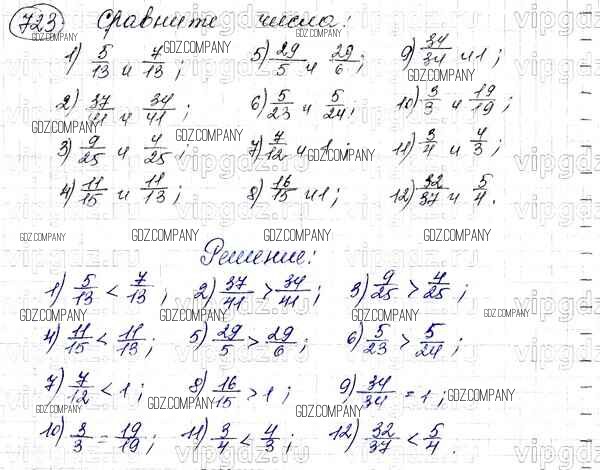 723 Сравните числа:
1) 5/13 и 7/13; 5) 29/5 и 29/6; 9) 34/34 и 1;
2) 37/41 и 34/41; 6) 5/23 и 5/24; 10) 3/3 и 19/19;
3) 9/25 и 4/25; 7) 7/12 и 1; 11) 3/4 и 4/3;
4) 11/15 и 11/13; 8) 16/15 и 1; 12) 32/37 и 5/4.
Решение:
1) 5/13 < 7/13; 2) 37/41 > 34/41; 3) 9/25 > 4/25;
4) 11/15 < 11/13; 5) 29/5 > 29/6; 6) 5/23 > 5/24;
7) 7/12 < 1; 8) 16/15 > 1; 9) 34/34 = 1;
10) 3/3 = 19/19; 11) 3/4 < 4/3; 12) 32/37 < 5/4.
GDZ.COMPANY
vipgdz.com